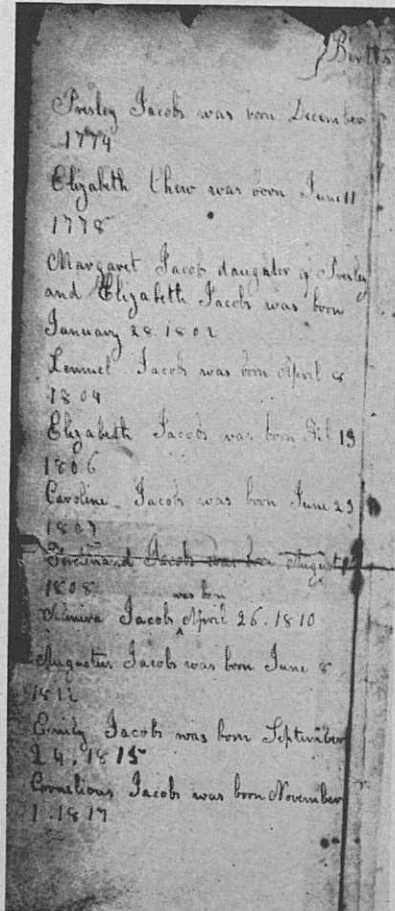 Births
Presley Jacob was born December
1774
Elizabeth Chew was born June 11
1778
Margaret Jacob daughter of Presley
and Elizabeth Jacob was born
January 28. 1802
Lemuel Jacob was born April 8
1804
Elizabeth Jacob was born 13
1806
Caroline Jacob was born June 23
1807
Ferdinand Jacob was born August
1808
was born
Almira Jacob ^ April 26. 1810
Augustus Jacob was born June 8
1812
Emily Jacob was born September
24. 1815
Cornelious Jacob was born November
1. 1817